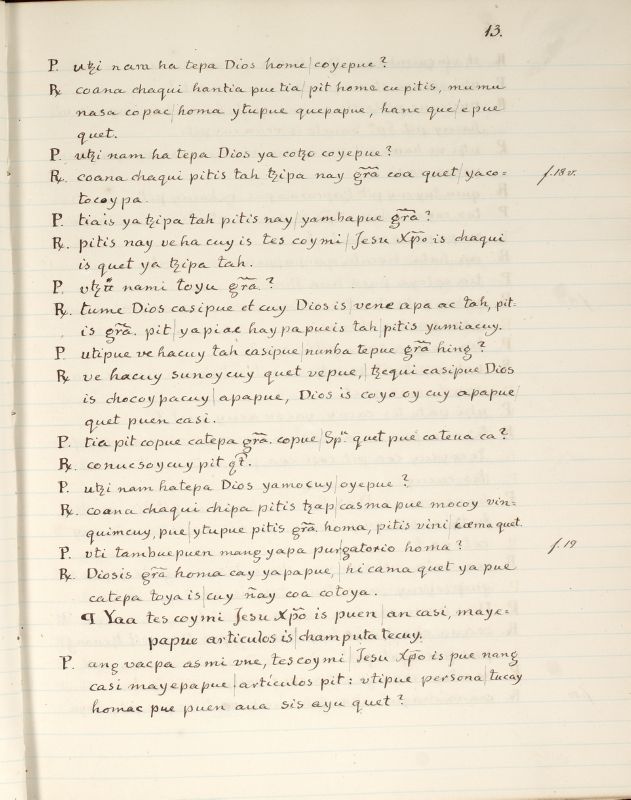 13.
P. utzi nara ha tepa Dios home/coyepue?
R. coana chaqui hantia pue tia/pit home cu pitis, mumu
nasa copac/homa ytupue quepapue, hane que/epue
quet.
P. utzi nam ha tepa Dios ya cotzo coyepue?
R. coana chaqui pitis tah tzipa nay gr̃a coa quet/yaco= f. 18 v.
tocoypa.
P. tiais ya tzipa tah pitis nay/yambapue gr̃a?
R. pitis nay veha cuy is tes coymi/Jesu Xp̃o is chaqui
is quet ya tzipa tah.
P. nami toyu gr̃a.?
R. tume Dios casipue et cuy Dios is/vene apa ac tah, pit.
is gr̃a. pit/yapiac hay papueis tah/pitis yumiacuy.
P. utipue ve hacuy tah casipue/nunba tepue gr̃a hing?
R. ve hacuy sunoycuy quet vepue,/tzequi casipue Dios
is chocoypacuy/apapue, Dios is coyo oy cuy apapue/
quet puen casi.
P. tia pit copue catepa gr̃a. copue/Spu. quet pue cateua ca?
R. conucsoycuy pit
P. utzi nam hatepa Dios yamocuy/oyepue?
R. coana chaqui chipa pitis tzap/casmapue mocoy vin=
quimcuy, pue/ytupue pitis gr̃a. homa, pitis vini/coema quet.
P. vti tambuepuen mang yapa pur/gatorio homa? f. 19
R. Diosis gr̃a homa cay yapacue,/hi cama quet ya pue
catepa toya is/cuy ñay coa cotoya.
¶ Yaa tes coymi Jesu Xp̃o is puen/an casi, maye=
papue articulos is/champuta tecuy.
P. ang vacpa asmi vne, tes coymi/Jesu Xp̃o is pue nang
casi mayepapue/articulos pit: vtipue persona/tucay
homac pue puen aua sis ayu quet?